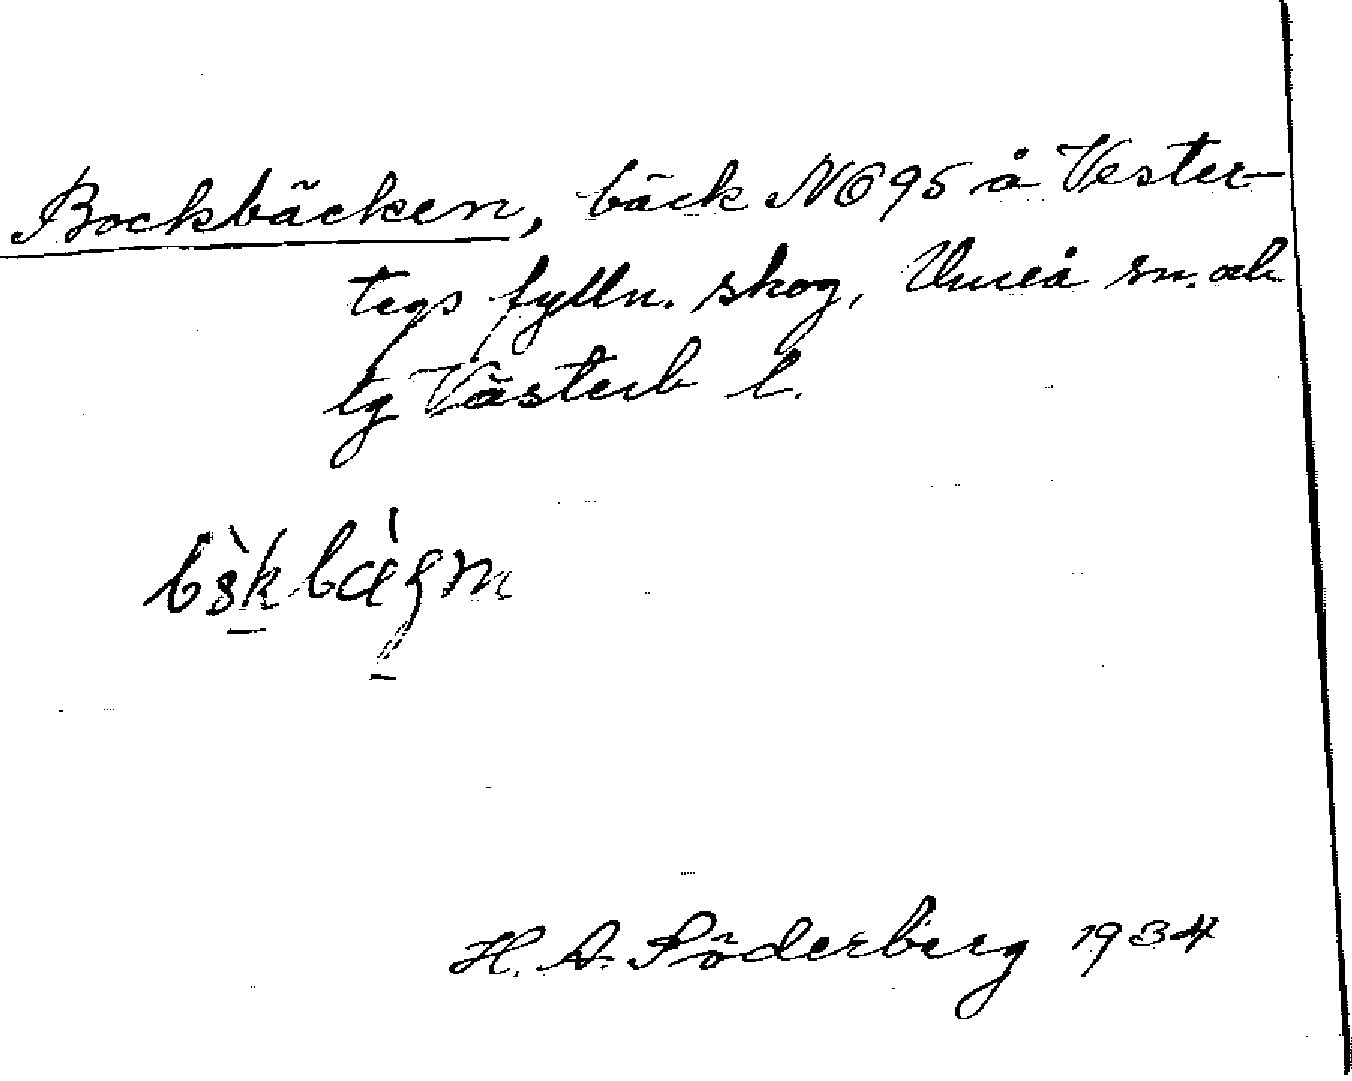 Bockbäcken, bäck NÖ 95 å Vester-
tegs fylln. skog, Umeå sn. ock
tg Västerb l.
H. A. Söderberg 1934